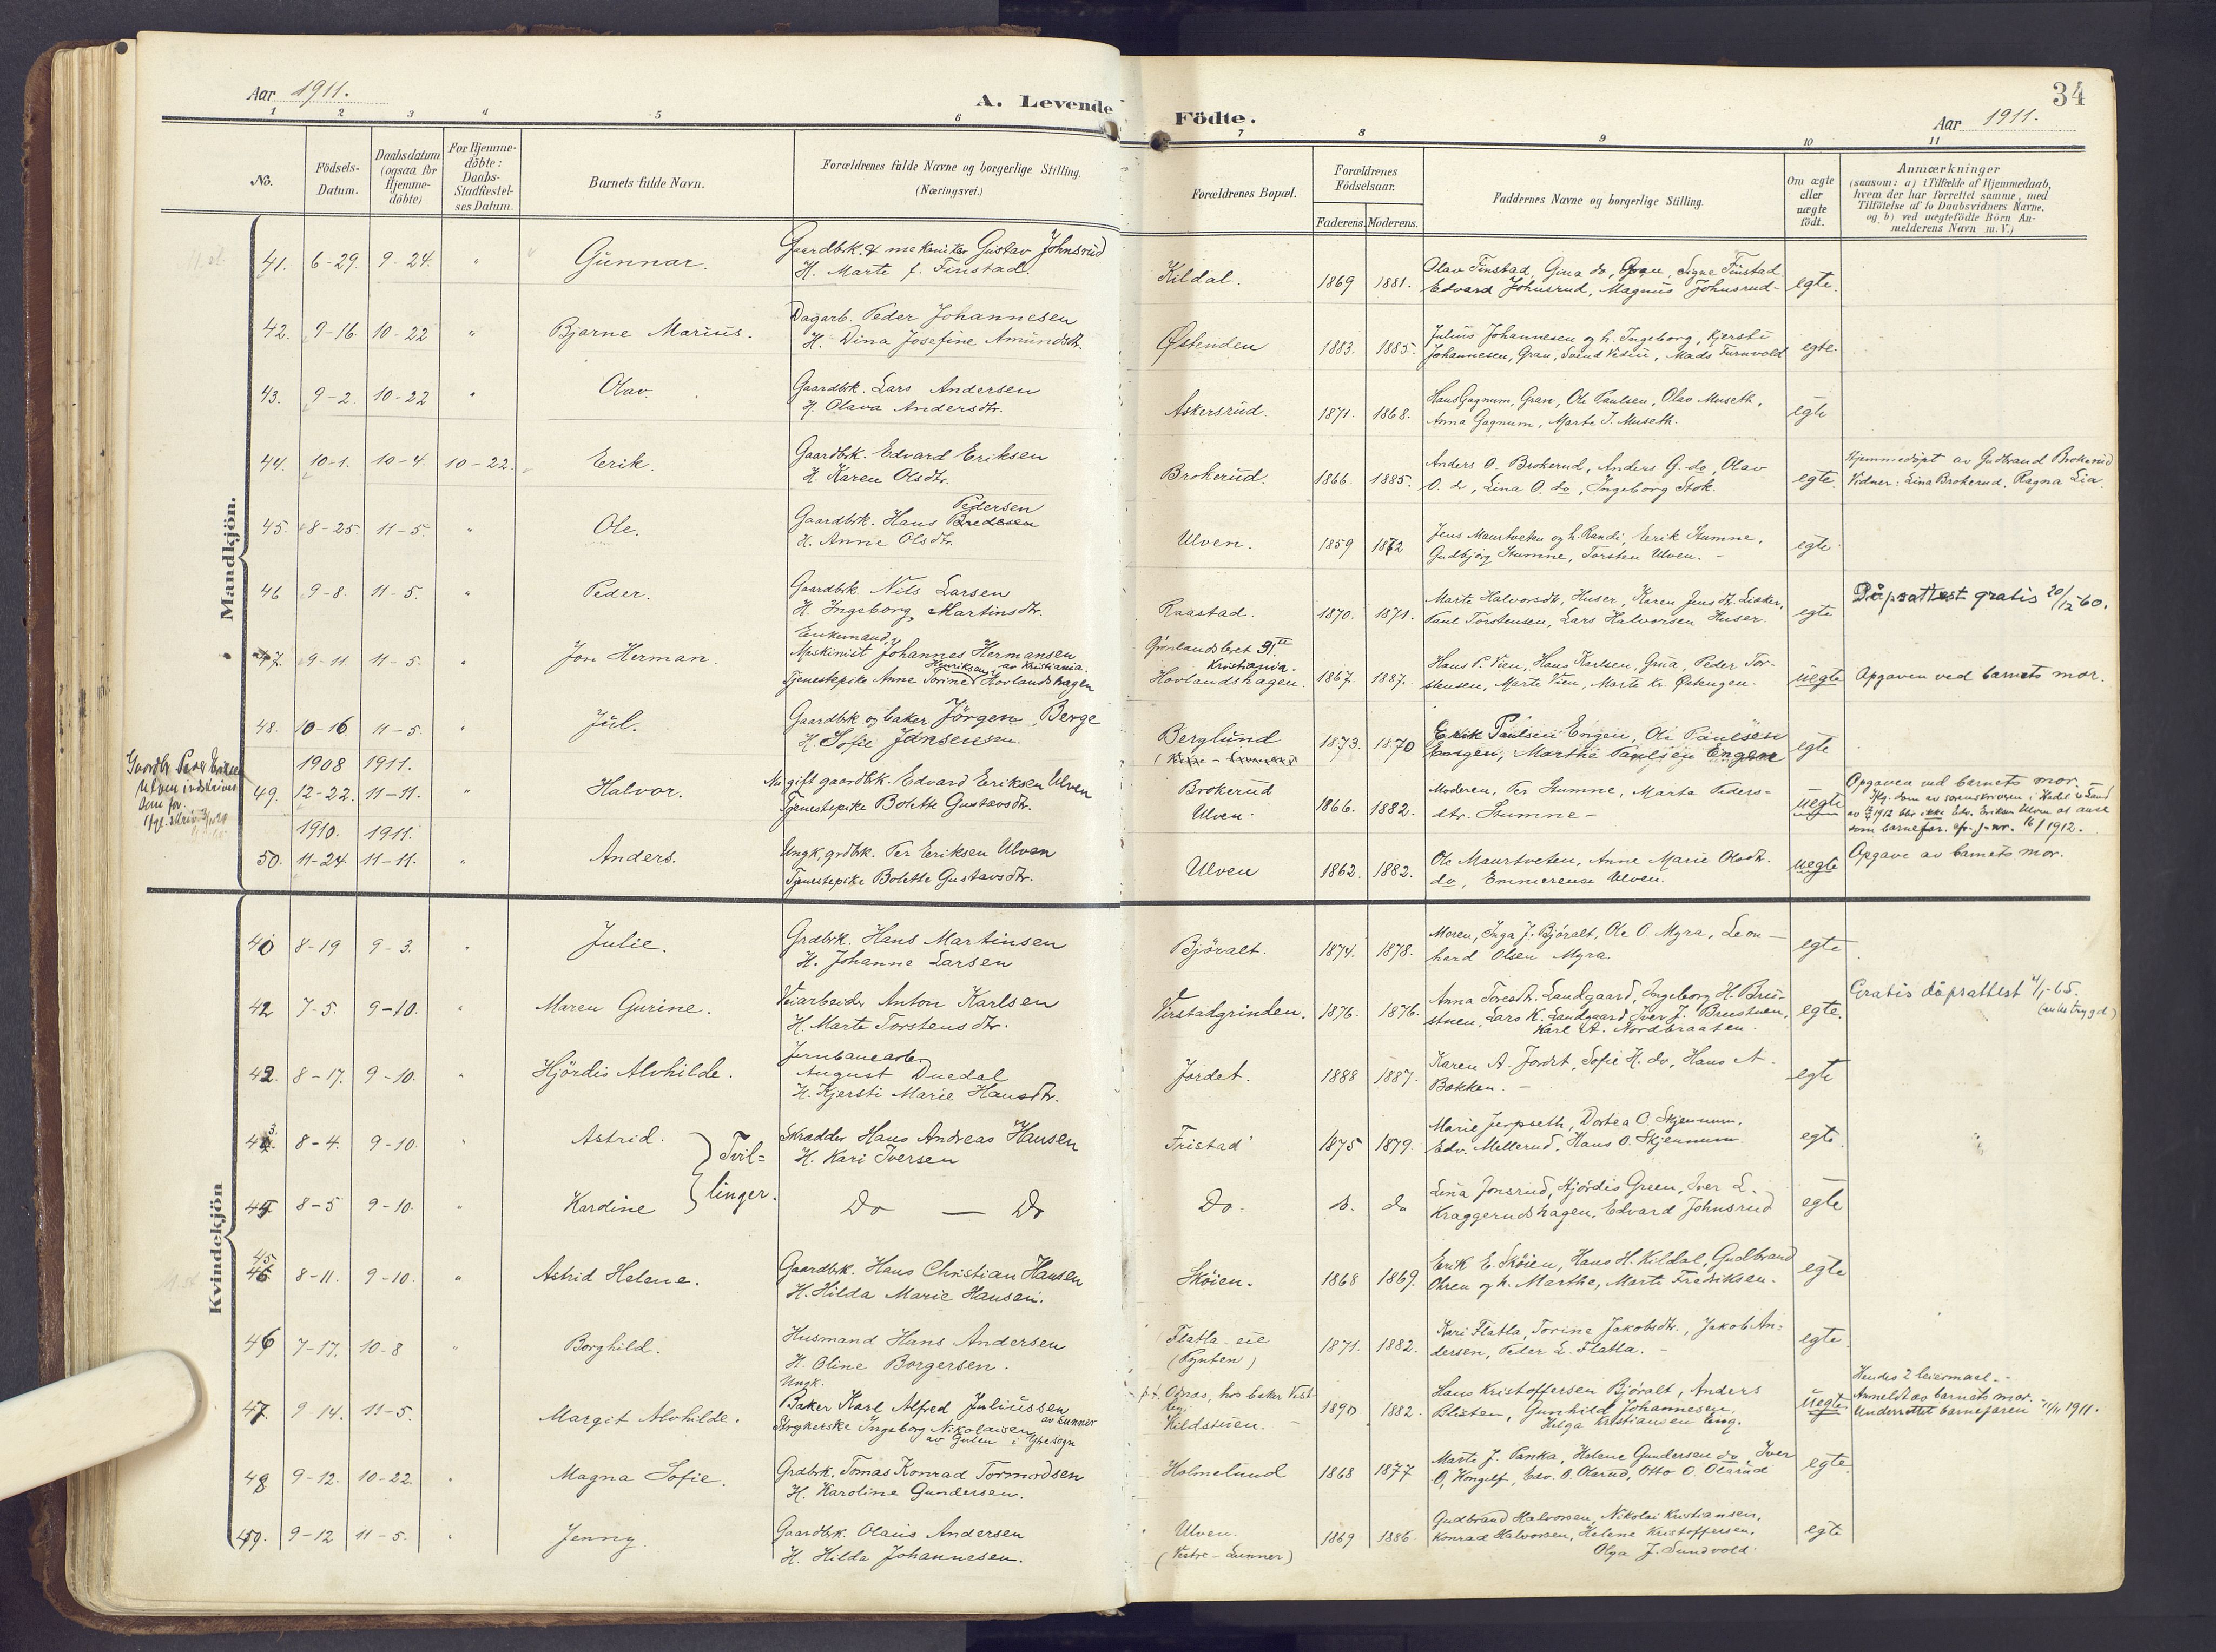 Aar 1911.
A. Levende Födte.
34
Aar 1911.
1 2 3 4 5 6 7 8 9 10 11
No.
Födsels-
Datum.
Daabsdatum
(ogsaa for
Hjemme-
döbte)
For Hjemme-
döbte:
Daabs-
Stadfæstel-
ses Datum.
Barnets fulde Navn.
Forældrenes fulde Navne og borgerlige Stilling.
(Næringsvei.)
Forældrenes Bopæl.
Forældrenes
Födselsaar.
Faderens. Moderens.
Faddernes Navne og borgerlige Stilling.
Om ægte
eller
uægte
födt.
Anmærkninger
(saasom: a) i Tilfælde af Hjemmedaab,
hvem der har forrettet samme, med
Tilföielse af to Daabsvidners Navne,
og b) ved uægtefödte Börn An-
melderens Navn m. V.)
Mandkjön.
41. 6-29. 9-24. " Gunnar.
Gaardbrk. & mekaniker Gustav Johnsrud
H. Marte f. Finstad.
Kildal. 1869 1881.
Olav Finstad, Gina do, Gran, Signe Finstad
Edvard Johnsrud, Magnus Johnsrud-
egte.
42. 9-16 10-22 " Bjarne Marius.
Dagarb. Peder Johannesen
H. Dina Josefine Amundsdtr.
Østenden 1883. 1885.
Julius Johannesen og h. Ingeborg, Kjersti
Johannesen, Gran, Svend Vedin, Mads Furuvold
egte.
43. 9-2 10-22 " Olav.
Gaardbrk. Lars Andersen
H. Olava Andersdtr.
Askersrud. 1871. 1868.
Hans Gagnum, Gran, Ole Paulsen, Olav Museth,
Anna Gagnum, Marte J. Museth.
egte
44. 10-1. 10-4. 10-22. Erik.
Gaardbrk. Edvard Eriksen
H. Karen Olsdtr.
Brokerud. 1866. 1885.
Anders O. Brokerud, Anders G. do, Olav
O. do, Lina O. do, Ingeborg Stok.
egte.
Hjemmedöpt av Gudbrand Brokerud
Vidner: Lina Brokerud, Ragna Lia.
45. 8-25. 11-5. " Ole.
Pedersen
Gaardbrk. Hans Bredesen
H. Anne Olsdtr.
Ulven. 1859 1872
Jens Maurtveten og h. Randi, Eerik Stumne,
Gudbjörg Stumne, Torsten Ulven. -
egte
46 9-8. 11-5. " Peder.
Gaardbrk. Nils Larsen
H. Ingeborg Martinsdtr.
Raastad. 1870. 1871.
Marte Halvorsdtr, Huser, Karen Jensdtr. Lisker,
Paul Torstensen, Lars Halvorsen Huser.
egte
Dåpsattest gratis 20/12-60.
47. 9-11 11-5. " Jon Herman.
Enkemand,
Maskinist Johannes Hermansen
Henriksen av Kristiania.
Tjenestepike Anne Torine Hovlandshagen
Grönlandsleret 31 II
Kristiania.
Hovlandshagen. 1867. 1887.
Hans P. Vien, Hans Karlsen, Grua, Peder Tor-
stensen, Marte Vien, Marte Kr. Østengen.
uegte
Opgaven ved barnets mor.
48. 10-16 11-5. " Jul.
Gaardbrk og baker Jörgen Berge
H. Sofie Jansensen.
Berglund 1873. 1870
Erik Paulsen Engen, Ole Paulsen
Engen, Marthe Paulsen Engen
egte
1908 1911.
49. 12-22. 11-11. " Halvor.
Gaardbr. Peder Eriksen
Ulven indskrives
som far.
Nu gift gaardbrk. Edvard Eriksen Ulven
Tjenestepike Bolette Gustavsdtr.
Brokerud
Ulven. 1866. 1882.
Moderen, Per Stumne, Marta Peders-
dtr. Stumne-
uegte
Opgaven ved barnets mor.
Iflg. dom av sorenskriveren i Hadel. & Land
1912 blir ikke Edv. Eriksen Ulven at anse
som barnefar. cfr. j-nr. 16/1912.
1910. 1911.
50. 11-24. 11-11. " Anders.
Ungk, grdbrk. Per Eriksen Ulven
Tjenestepike Bolette Gustavsdtr.
Ulven 1862. 1882.
Ole Maurtveten, Anne Marie Olsdtr.
do, Emmerense Ulven.
uegte
Opgave av barnets mor.
Kvindekjön
40 8-19 9-3. " Julie.
Grdbrk. Hans Martinsen
H. Johanne Larsen
Björalt. 1874. 1878.
Moren, Inga J. Björalt, Ole O. Myra, Leon-
hard Olsen Myra.
egte
42 7-5. 9-10. " Maren Gurine.
Veiarbeider Anton Karlsen
H. Marte Torstensdtr.
Virstadgrinden. 1876. 1876.
Anna Toresdtr. Landgaard, Ingeborg H. Bru-
stuen, Lars K. Landgaard, Iver J. Brustuen,
Karl A. Nordbraaten.
egte.
Gratis dåpsattest 4/1-65.
42. 8-17. 9-10. " Hjördis Alvhilde.
Jernbanearb.
August Duedal
H. Kjersti Marie Hansdtr.
Jordet. 1888 1887.
Karen A. Jordet, Sofie H. do, Hans A.
Bakken. -
egte
43. 8-4. 9-10. " Astrid.
Tvil=
linger.
Skrædder Hans Andreas Hansen
H. Kari Iversen
Fristad 1875 1879.
Marie Jerpseth, Dortea O. Skjennum,
Edv. Mellerud, Hans O. Skjennum
egte
44. 8-5 9-10. " Kardine
Do - Do
Do. do. do
Lina Jonsrud, Hjördis Green, Iver L.
Kraggerudshagen, Edvard Johnsrud
egte
45. 46 8-11. 9-10. " Astrid Helene.
Gaardbrk. Hans Christian Hansen
H. Hilda Marie Hansen.
Sköien. 1868 1869.
Erik E. Sköien, Hans H. Kildal, Gudbrand
Ohren og h. Marthe, Marte Fredriksen.
egte
46 7-17. 10-8 " Borghild.
Husmand Hans Andersen
H. Oline Borgersen.
Flatla-eie
(Pynten) 1871. 1882.
Kari Flatla, Torine Jakobsdtr., Jakob An=
dersen, Peder L. Flatla. -
egte
47. 9-14. 11-5. Margit Alvhilde.
Ungk.
Baker Karl Alfred Juliussen
av Lunner
Strykerske Ingeborg Nikolaisen
av Gulen i Ytresogn
p.t. Oznas, hos baker Vest-
Kildstuen. 1890 1882.
Hans Kristoffersen Björalt, Anders
Blisten, Gunhild Johannesen,
Helga Kristiansen Eng.
uegte
Hendes 2 leiermaal.-
Anmeldt av barnets mor.
Underrettet barnefaren 11/11 1911.
48 9-12. 10-22. " Magna Sofie.
Grdbrk. Tomas Konrad Tormodsen
H. Karoline Gundersen.
Holmelund 1868 1877
Marte J. Panka, Helene Gundersen do, Iver
O. Kongelf, Edv. O. Olerud, Otto O. Olerud
egte.
49. 9-12 11-5. " Jenny.
Gaardbrk. Olaus Andersen
H. Hilda Johannesen.
Ulven.
(Vestre-Lunner) 1869 1886.
Gudbrand Halvorsen, Nikolai Kristiansen,
Konrad Halvorsen, Helene Kristoffersen,
Olga J. Sundvold.
egte